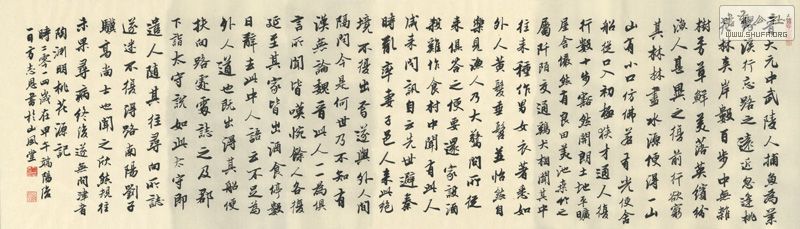 晉太元中武陵人捕魚為業
緣溪行忘路之遠近忽逢桃
花林夾岸數百步中無雜
樹芳草鮮美落英繽紛
漁人甚異之復前行欲窮
其林林盡水源便得一山
山有小口仿佛若有光便舍
船從口入初極狹才通人復
行數十步豁然開朗土地平曠
屋舍儼然有良田美池桑竹之
屬阡陌交通雞犬相聞其中
往來種作男女衣著悉如
外人黃髮垂髫並怡然自
樂見漁人乃大驚問所從
來俱答之便要還家設酒
殺雞作食村中聞有此人
咸來問訊自云先世避秦
時亂率妻子邑人來此絕
境不復出焉遂與外人間
隔問今是何世乃不知有
漢無論魏晉此人一一為俱
言所聞皆嘆惋餘人各復
延至其家皆出酒食停數
日辭去此中人語云不足為
外人道也既出得其船便
扶向路處處誌之及郡
下詣太守說如此太守即
遣人隨其往尋向所誌
遂迷不復得路南陽劉子
驥高尚士也聞之欣然規往
未果尋病終後遂無問津者
陶淵明桃花源記
時二零一四歲在甲午端陽後
一日方志恩書於山風堂
WWW.SHUFA.ORG